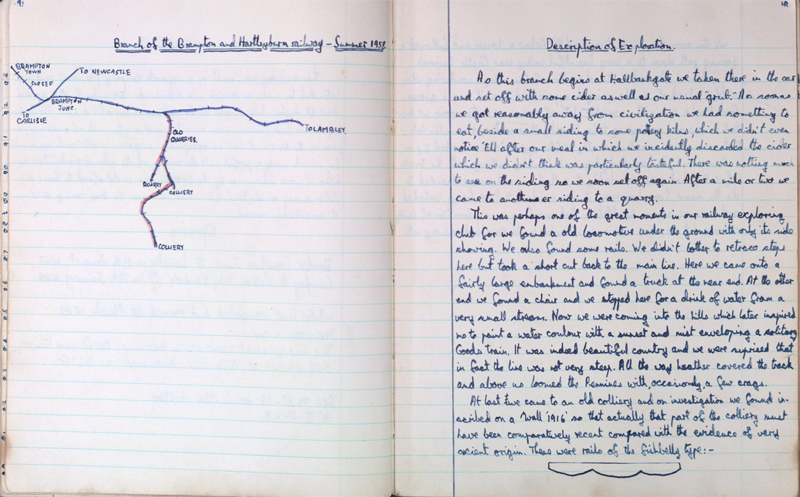 Branch of the Brampton and Hartleyburn railway - Summer 195
BRAMPTON
TOWN
CLOSED
TO NEWCASTLE
BRAMPTON
JUNC.
TO
CARLISLE
OLD
QUARRIES.
TO LAMBLEY.
QUARRY
COLLIERY
COLLIERY
Description of Exploration.
As this branch begins at Hallbankgate we taken there in the car
and set off with some cider as well as our usual "grub". As soon as
we got reasonably away from civilization we had something to
eat, beside a small siding to some potery kilns, which we didn't even
notice 'till after our meal in which we incidently discarded the cider
which we didn't think was particularly tasteful. There was nothing much
to see on the siding so we soon set off again. After a mile or two we
came to another siding to a quarry.
This was perhaps one of the great moments in our railway exploring
club for we found a old locomotive under the ground with only its side
showing. We also found some rails. We didn't bother to retrace steps
here but took a short cut back to the main line. Here we came onto a
fairly large embankment and found a truck at the near end. At the other
end we found a chair and we stopped here for a drink of water from a
very small stream. Now we were coming into the hills which later inspired
me to paint a water coulour with a sunset and mist enveloping a solitary
Goods train. It was indeed beautiful country and we were suprised that
in fact the line was not very steep. All the way heather covered the track
and above us loomed the Pennines with occasionly a few crags.
At last we came to an old colliery and on investigation we found in-
scribed on a wall '1916' so that actually that part of the colliery must
have been comparatively recent compared with the evidence of very
ancient origin. There were rails of the fishbelly type:-